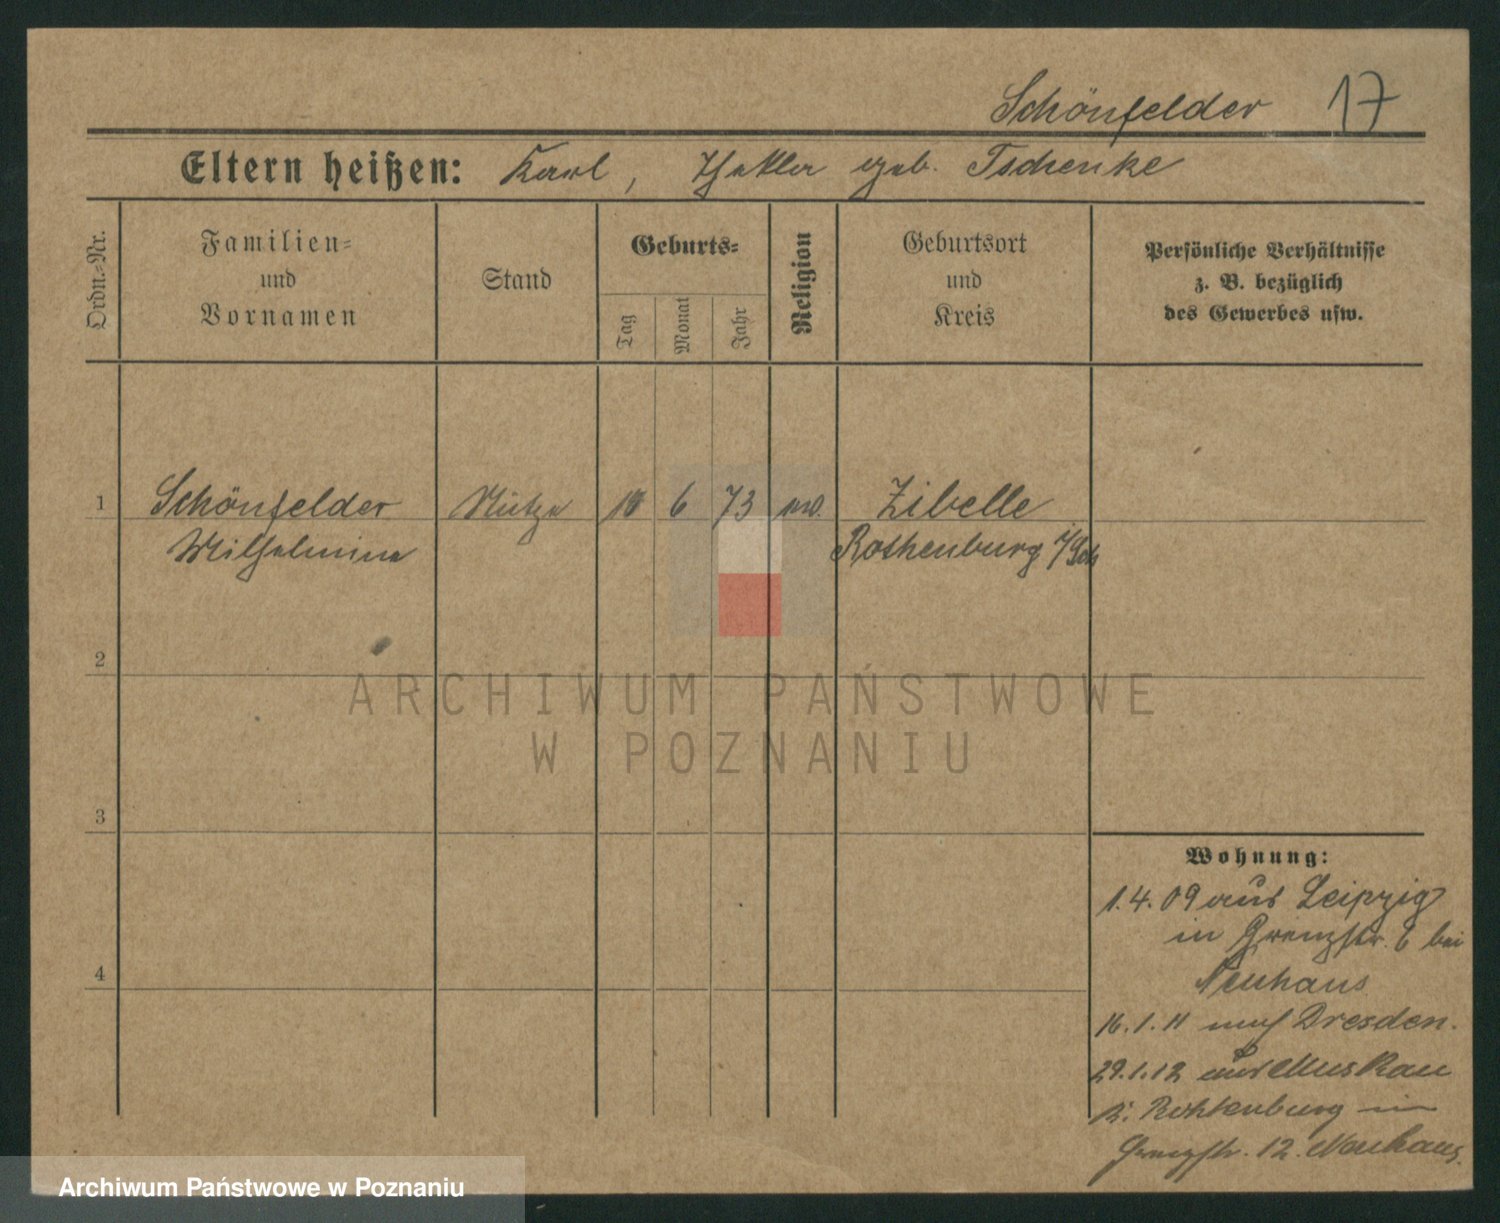 Schönfelder 17
Eltern heißen: Karl, Thekla geb. Tschenke
Ordn.-Nr.
Familien-
und
Vornamen
Stand
Geburts-
Tag
Monat
Jahr
Religion
Geburtsort
und
Kreis
Persönliche Verhältnisse
z. B. bezüglich
des Gewerbes usw.
1 Schönfelder 6 73 Zibelle
Wilhelmine Rothenburg
2
ARCHIWUM PAŃSTWOWE
W POZNANIU
3
Wohnung:
1.4.09 aus Leipzig
in Grenzstr. 6 bei
Neuhaus
4
16.1.11 nach Dresden.
29.1.12 aus Muskau
Rothenburg in
Grenzstr. 12. Neuhaus.
Archiwum Państwowe w Poznaniu